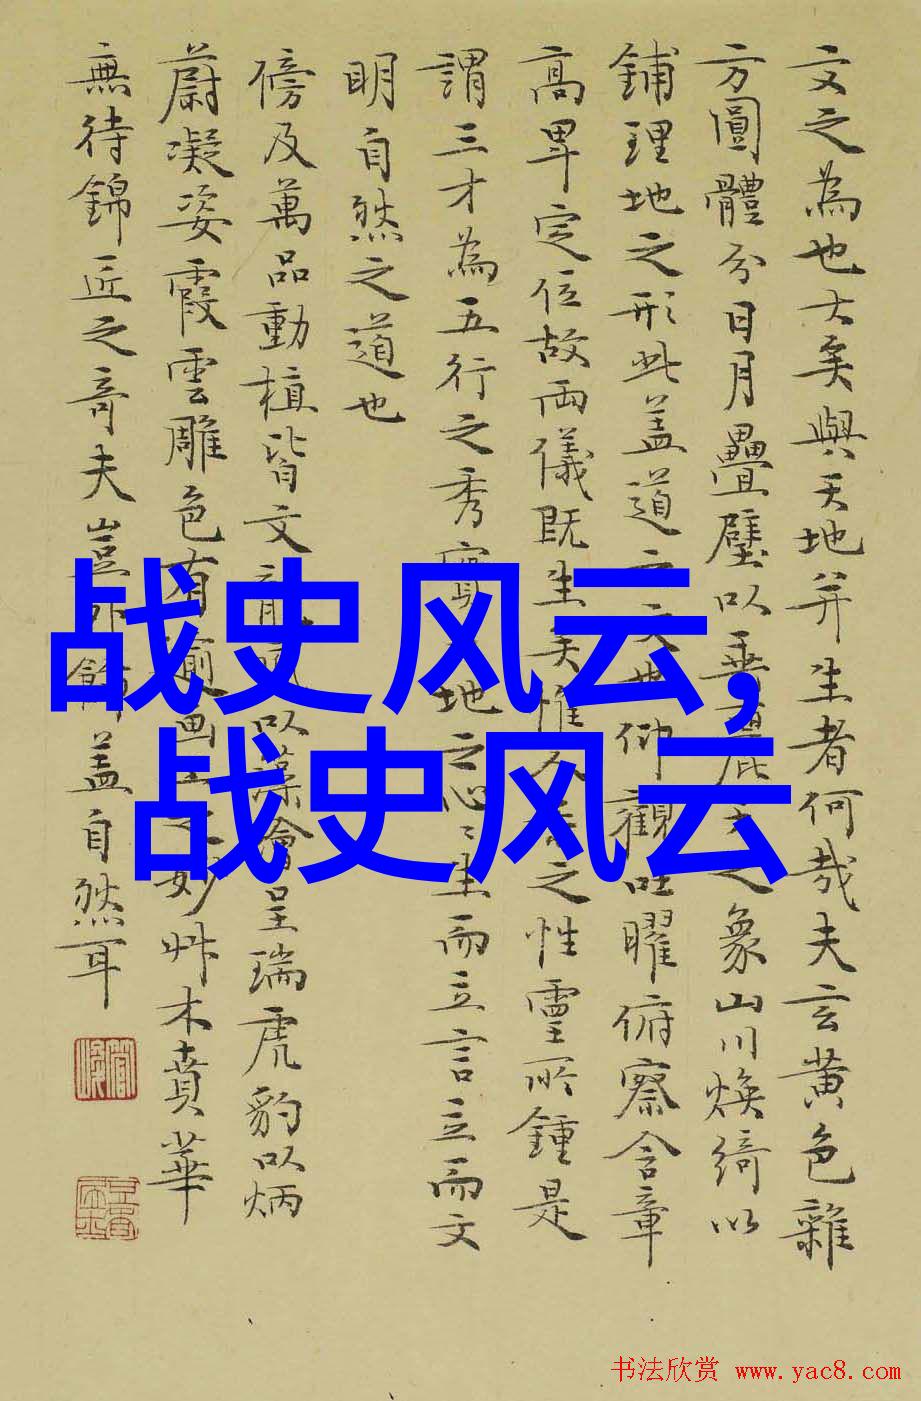 文之為也大矣與天地并生者何哉夫玄黄色雜
方圓體分日月疊壁以垂麗之象山川煥綺以
鋪理地之形此盖道之文也仰觀吐曜俯察含章
高卑定位故兩儀既生矣惟人之性靈所鍾是
謂三才為五行之秀實地之心〻生而立言立而文
明自然之道也
傍及萬品動植皆文龍以藻繪呈瑞虎豹以炳
蔚凝姿霞雲雕色有之妙艸木賁華
無待錦匠之奇夫豈外飾盖自然耳
战史风云,
战史风云
书法欣赏 www.yac8.com